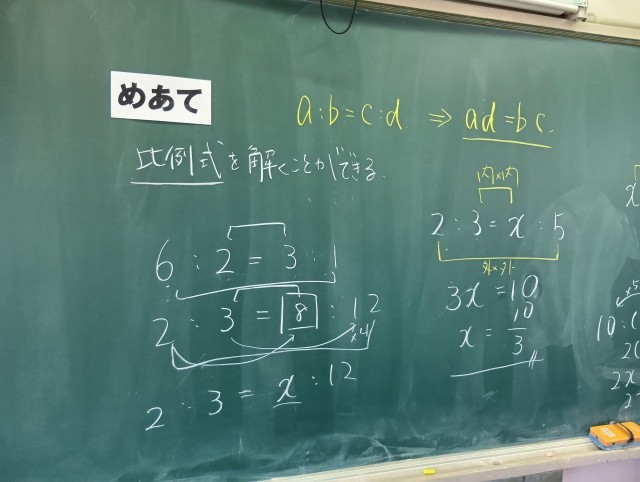 めあて
a:b=c:d ⇒ ad=bc
比例式を解くことができる。
6:2=3:1
2:3=8:12
×4
2:3=x:12
内×内
2:3=x:5
外×外
3x=10
x=10/3
x
10:
2x